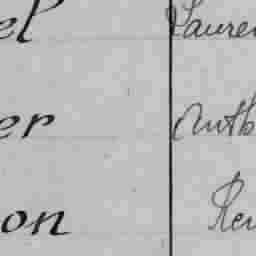 el Lauren
er Anth
on Ren